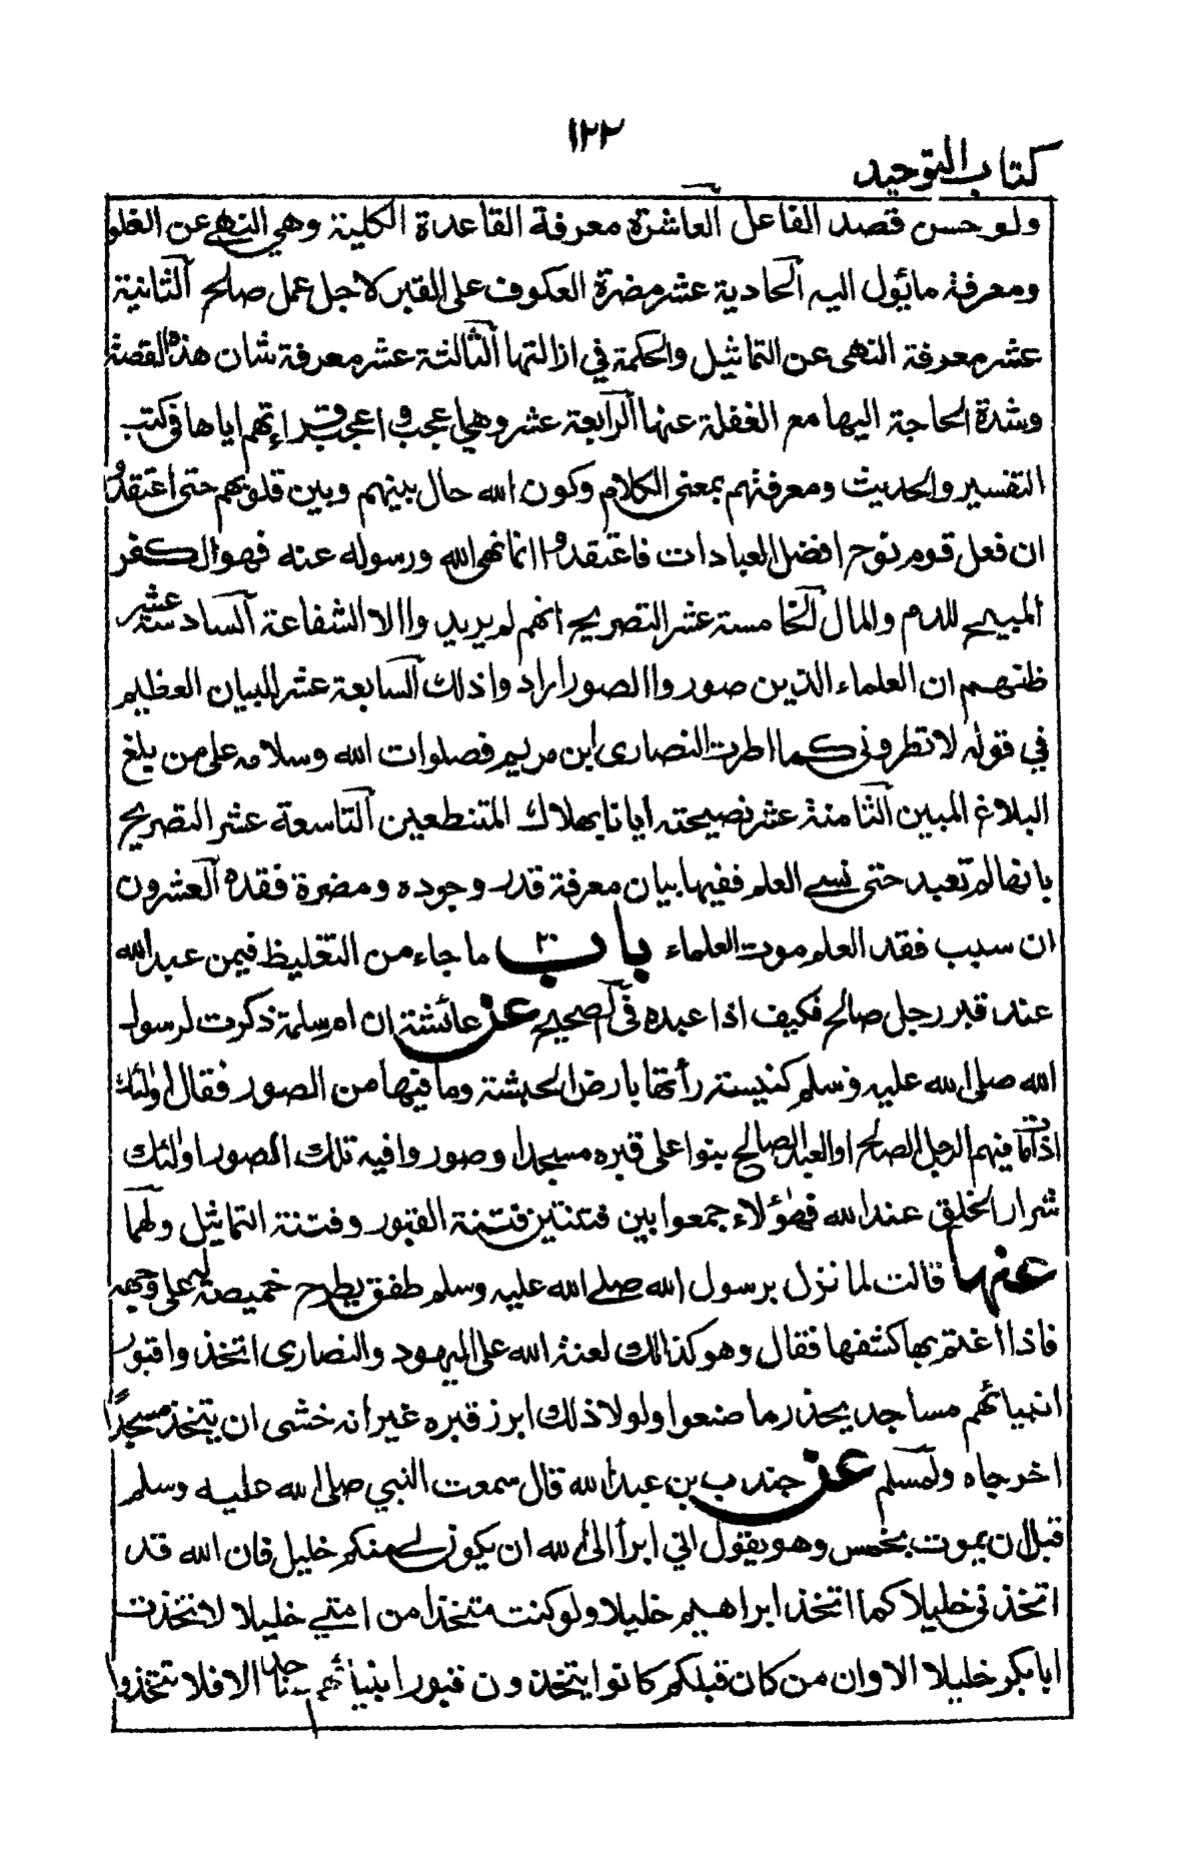 ١٢٢
كتاب التوحيد
ولو حسن قصد الفاعل العاشرة معرفة القاعدة الكلية وهي النهي عن الغلو
ومعرفة ما يؤل اليه الحادية عشر مضرة العكوف على القبر لاجل عمل صالح الثانية
عشر معرفة النهى عن التماثيل والحكمة في ازالتها الثالثة عشر معرفة شان هذه القصة
وشدة الحاجة اليها مع الغفلة عنها الرابعة عشر وهي اعجب واعجب قراءتهم اياها في كتب
التفسير والحديث ومعرفتهم بمعنى الكلام وكون الله حال بينهم وبين قلوبهم حتى اعتقدوا
ان فعل قوم نوح افضل العبادات فاعتقدوا انما نهى الله ورسوله عنه فهو الكفر
المبيح للدم والمال الخامسة عشر التصريح انهم لم يريدوا الا الشفاعة السادسة عشر
ظنهم ان العلماء الذين صوروا الصور ارادوا ذلك السابعة عشر البيان العظيم
في قوله لا تطروني كما اطرت النصارى ابن مريم فصلوات الله وسلامه على من بلغ
البلاغ المبين الثامنة عشر نصيحته ايانا بهلاك المتنطعين التاسعة عشر التصريح
بانها لم تعبد حتى نسي العلم ففيها بيان معرفة قدر وجوده ومضرة فقده العشرون
ان سبب فقد العلم موت العلماء باب ما جاء من التغليظ فيمن عبد الله
عند قبر رجل صالح فكيف اذا عبده في الصحيح عن عائشة ان ام سلمة ذكرت لرسول
الله صلى الله عليه وسلم كنيسة رأتها بارض الحبشة وما فيها من الصور فقال اولئك
اذا مات فيهم الرجل الصالح او العبد الصالح بنوا على قبره مسجدا وصوروا فيه تلك الصور اولئك
شرار الخلق عند الله فهؤلاء جمعوا بين فتنتين فتنة القبور وفتنة التماثيل ولهما
عنها قالت لما نزل برسول الله صلى الله عليه وسلم طفق يطرح خميصة له على وجهه
فاذا اغتم بها كشفها فقال وهو كذالك لعنة الله على اليهود والنصارى اتخذوا قبور
انبيائهم مساجد يحذر ما صنعوا ولولا ذلك ابرز قبره غير انه خشى ان يتخذ مسجدًا
اخرجاه ولمسلم عن جندب بن عبد الله قال سمعت النبي صلى الله عليه وسلم
قبل ان يموت بخمس وهو يقول اني ابرأ الى الله ان يكون لي منكم خليل فان الله قد
اتخذني خليلا كما اتخذ ابراهيم خليلا ولو كنت متخذا من امتي خليلا لاتخذت
ابا بكر خليلا الا وان من كان قبلكم كانوا يتخذون قبور انبيائهم مساجد الا فلا تتخذوا